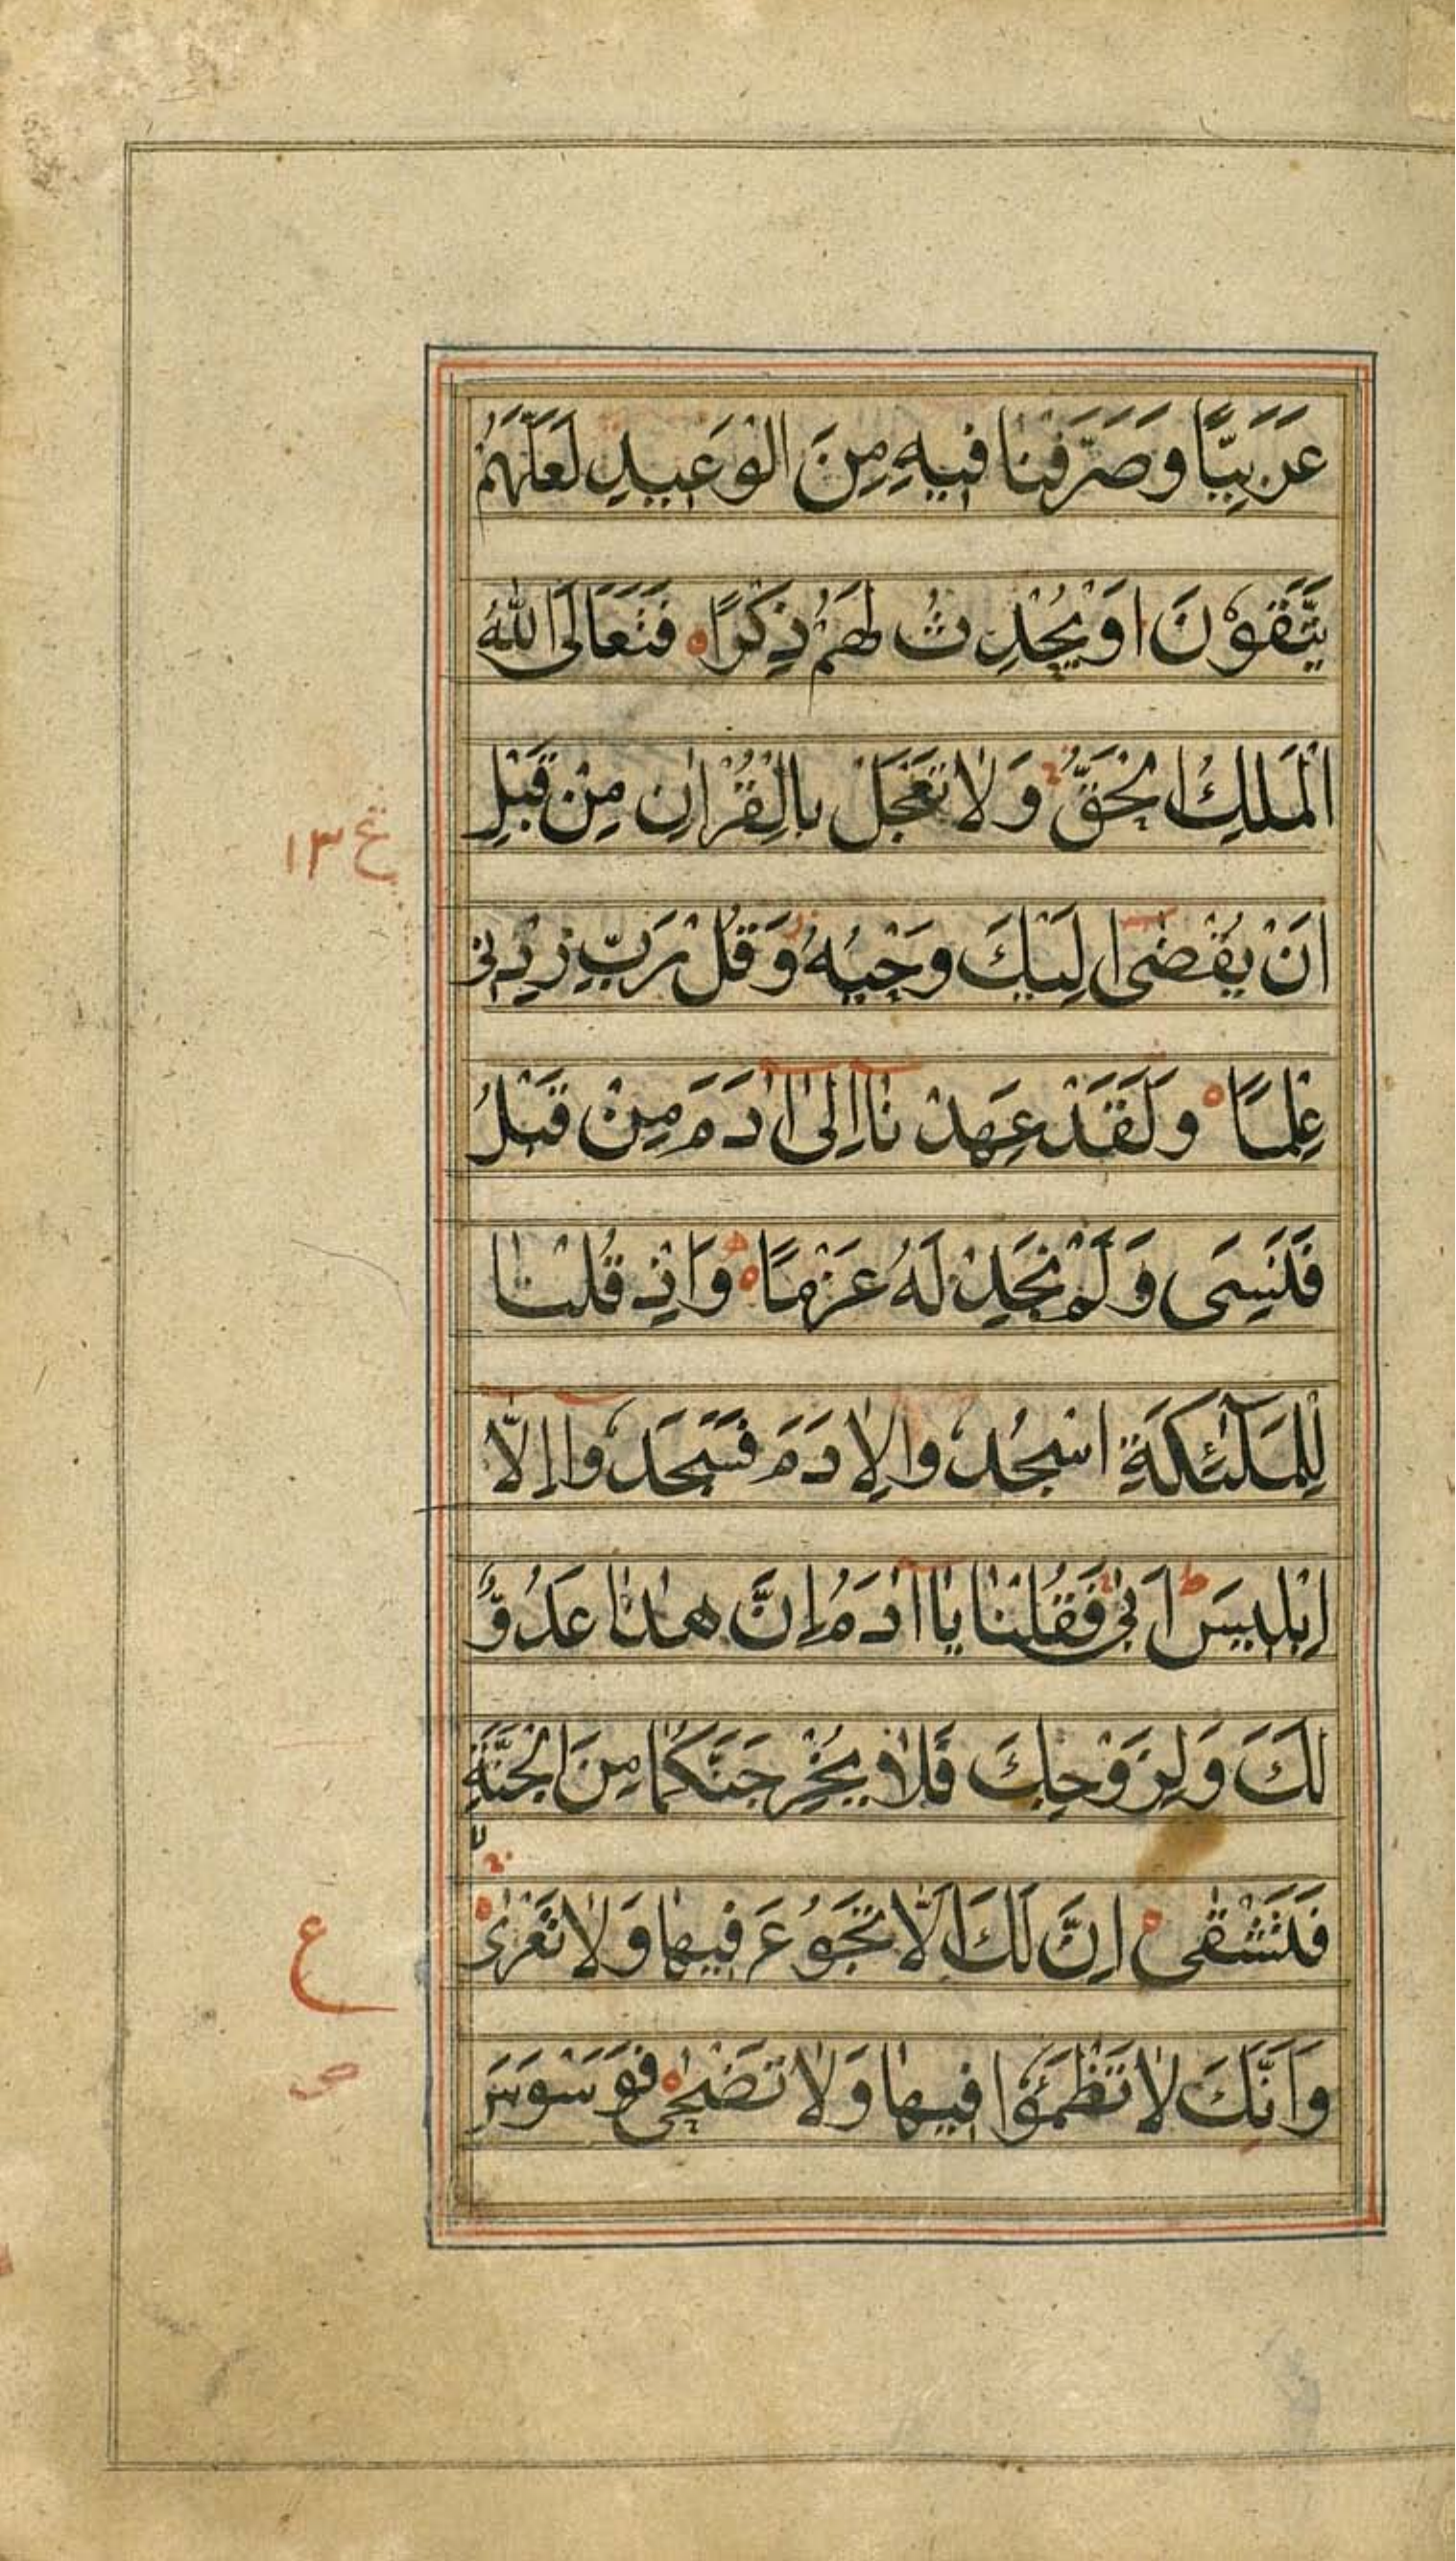 عَرَبِيًّا وَصَرَّفْنَا فِيهِ مِنَ الْوَعِيدِ لَعَلَّهُمْ
يَتَّقُوْنَ اَوْ يُحْدِثُ لَهُمْ ذِكْرًا ه فَتَعَالَى اللهُ
الْمَلِكُ الْحَقُّ ج وَلَا تَعْجَلْ بِالْقُرْاٰنِ مِنْ قَبْلِ
١٣ ع
اَنْ يُقْضٰى اِلَيْكَ وَحْيُهُ ز وَقُلْ رَبِّ زِدْنِى
عِلْمًا ه وَلَقَدْ عَهِدْنَا اِلٰى اٰدَمَ مِنْ قَبْلُ
فَنَسِىَ وَلَمْ نَجِدْ لَهُ عَزْمًا ه وَاِذْ قُلْنَا
لِلْمَلٰٓئِكَةِ اسْجُدُوا لِاٰدَمَ فَسَجَدُوا اِلَّا
اِبْلِيسَ ط اَبٰى فَقُلْنَا يَا اٰدَمُ اِنَّ هٰذَا عَدُوٌّ
لَكَ وَلِزَوْجِكَ فَلَا يُخْرِجَنَّكُمَا مِنَ الْجَنَّةِ
فَتَشْقٰى ه اِنَّ لَكَ اَلَّا تَجُوْعَ فِيهَا وَلَا تَعْرٰى ه
ع
وَاَنَّكَ لَا تَظْمَؤُا فِيهَا وَلَا تَضْحٰى ه فَوَسْوَسَ
ص